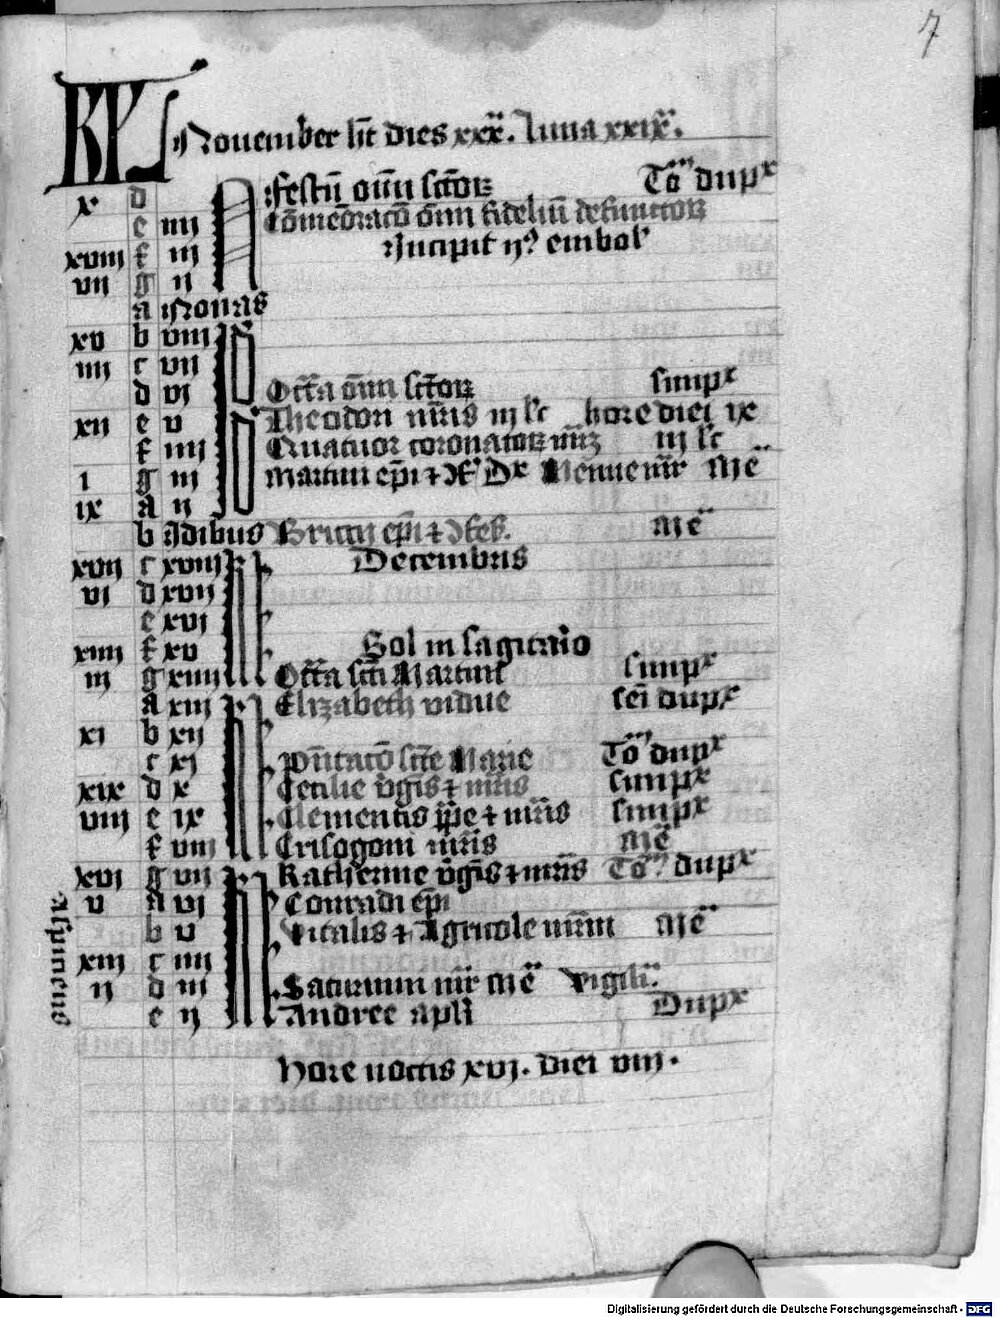 7
KL November hēt dies xxx. luna xxix.
x d Festū om̄ sctōꝝ Tō dupˣ
e iiij Cōmēoracō om̄ fideliū defunctoꝝ
xviii f iij Incipit ijꝰ embolˀ
vii g ij
a Nonas
xv b viii
iiij c vii
d vj Octā om̄ sctōꝝ simpˣ
xii e v Theodori mr̄is iij lc hore diei ix
f iiij Quatuor coronatoꝝ mr̄ꝝ iij lc
i g iij Martini ep̄i ⁊ Dˣ Menne mr̄ Mē
ix a ij
b Idibus Briccij ep̄i ⁊ Mē
xvii c xviii Decembris
vi d xvii
e xvj
xiiii f xv Sol in sagitario
iij g xiiii Octā scī Martini simpˣ
a xiij Elizabeth vidue sei dupˣ
xi b xij
c xj Pn̄tacō scte Marie Tō dupˣ
xix d x Cecilie v̄gīs ⁊ mr̄is simpˣ
viii e ix Clementis ppe ⁊ mr̄is simpˣ
f viii Crisogoni mr̄is Mē
xvj g vii Katherine v̄gīs ⁊ mr̄is Tō dupˣ
v a vj Conradi ep̄i
b v Vitalis ⁊ Agricole mr̄um Mē
xiii c iiij
ii d iij Saturnini mr̄ Mē vigiliˀ
e ij Andree apl̄i Dupˣ
Hore noctis xvj. diei viij.
Digitalisierung gefördert durch die Deutsche Forschungsgemeinschaft - DFG